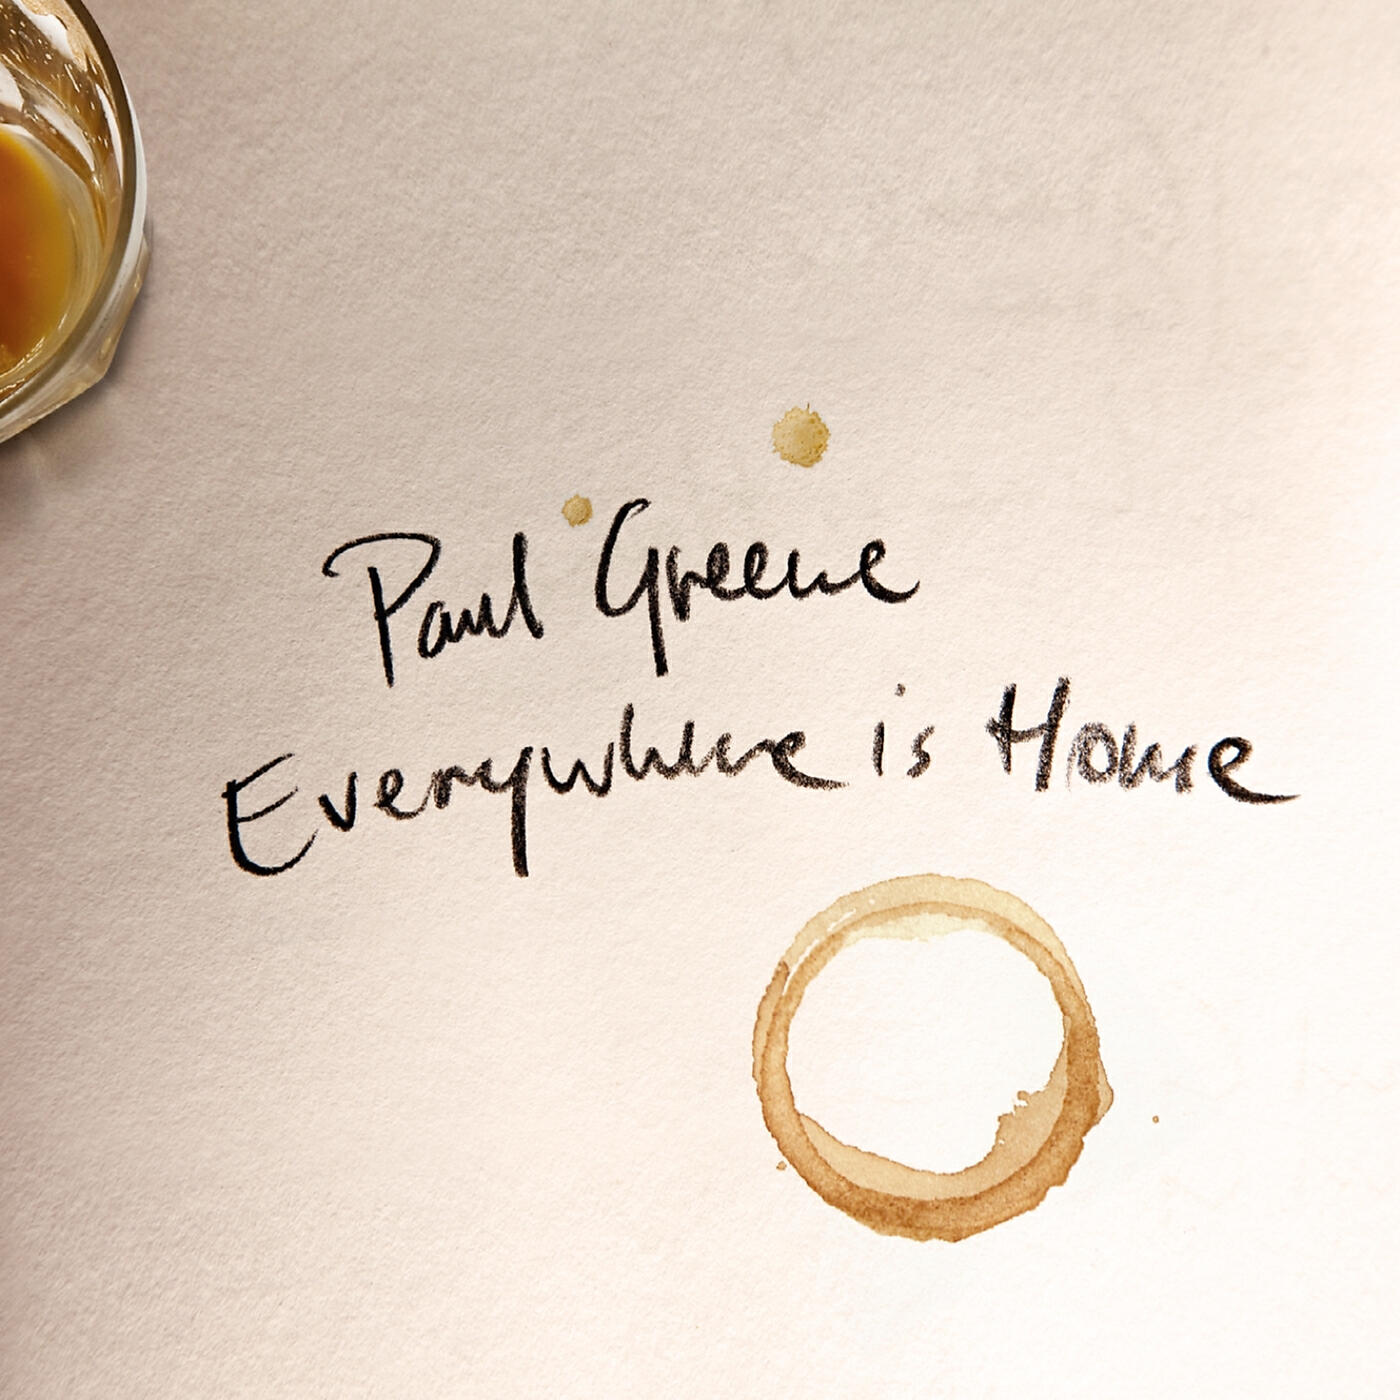 Paul Greene
Everywhere is Home